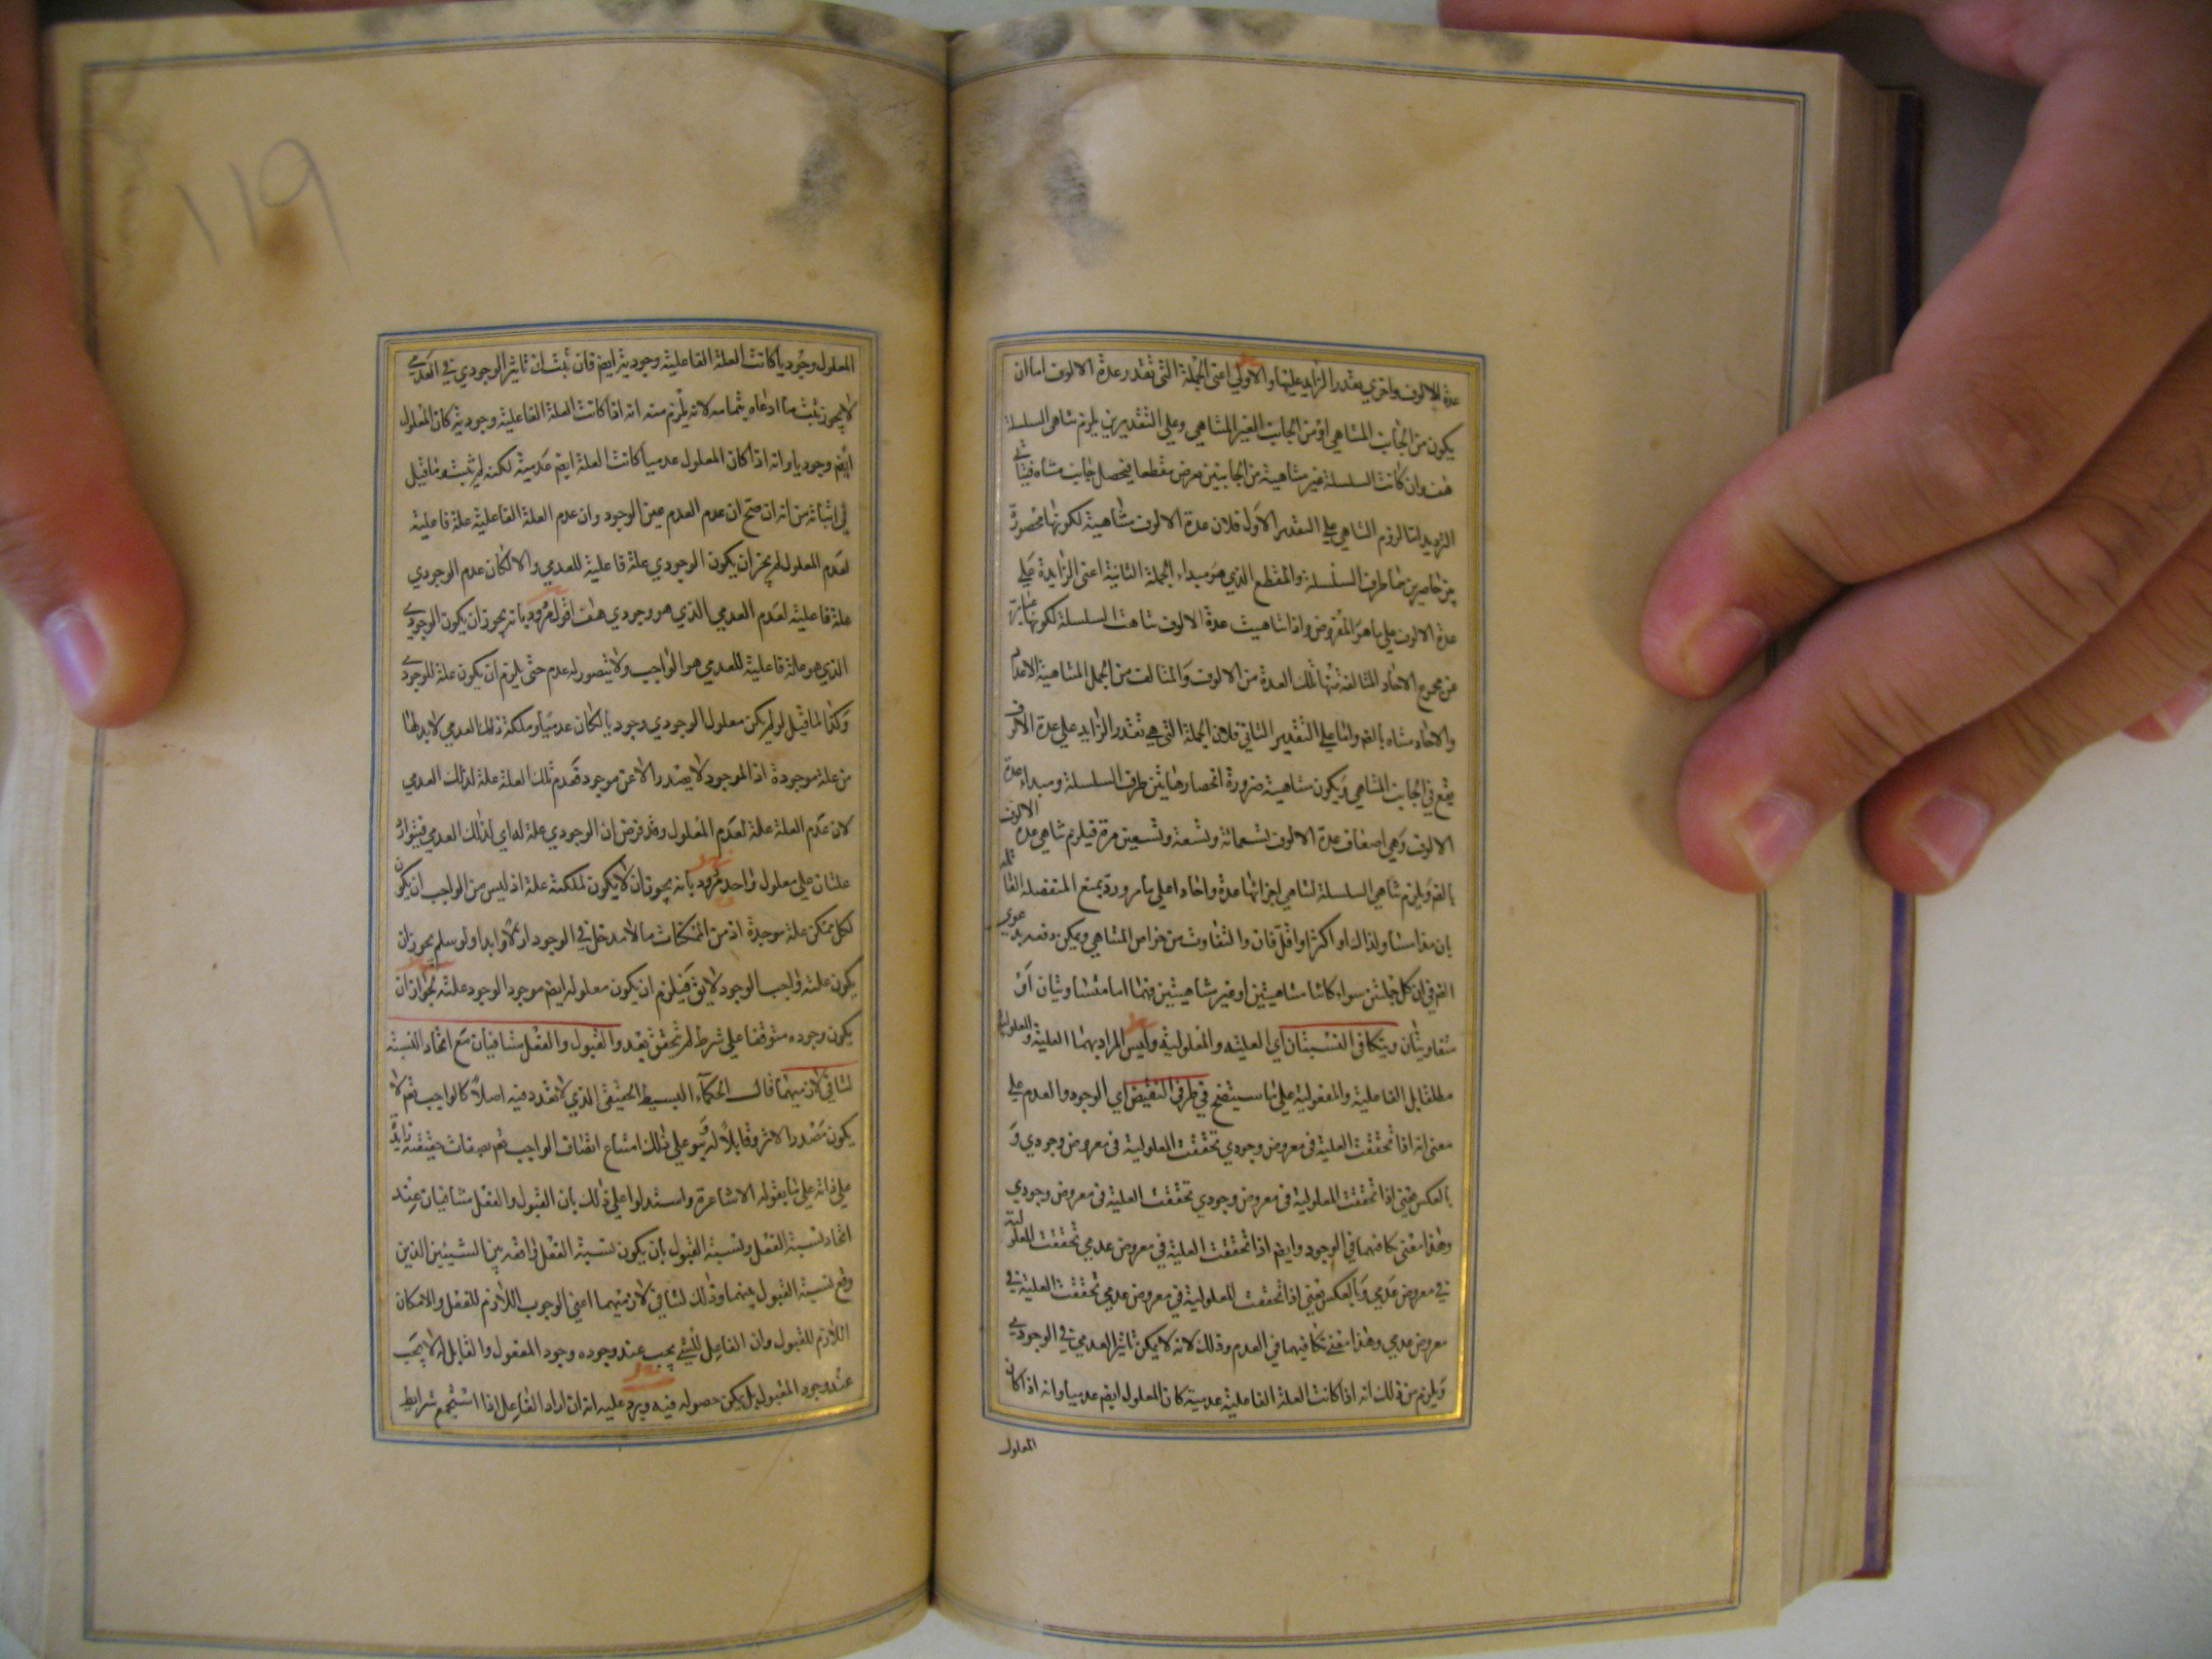 عدة الالوف واخري بقدر الزايد عليها والاولي اعنى الجملة التى تقدر عدة الالوف اما ان
يكون من الجانب المتناهي او من الجانب الغير المتناهي وعلي التقديرين يلزم تناهى السلسلة
هف وان كانت السلسلة غير متناهية من الجانبين نعرض مقطعا فيحصل جانب متناه فيتأتى
الترديد اما لزوم التناهي علي التقدير الاول فلان عدة الالوف متناهية لكونها محصورة
بين حاصرين هما طرف السلسلة والمقطع الذي هو مبداء الجملة الثانية اعنى الزايدة علي
عدة الالوف علي ما هو المفروض واذا تناهيت عدة الالوف تناهت السلسلة لكونها عبارة
عن مجموع الاحاد المتالفة منها تلك العدة من الالوف والمتالف من الجمل المتناهية الاعداد
والاحاد متناه بالضم واما علي التقدير الثاني فلان الجملة التى هي تقدر الزايد علي عدة الالوف
يقع في الجانب المتناهي ويكون متناهية ضرورة انحصارها بين طرف السلسلة ومبداء عدة
الالوف وهي اضعاف عدة الالوف تسعمائة وتسعة وتسعين مرة فيلزم تناهي عدة الالوف
بالضم ويلزم تناهي السلسلة لتناهي اجزائها عدة واحادا علي ما مر ورد بمنع المنفصلة القائلة
بان هذا مساو لذاك او اكثر او اقل فان والتفاوت من خواص المتناهي ويمكن دفعه بدعوي
الضم في ان كل جملتين سواء كانتا متناهيتين او غير متناهيتين فهما اما متساويتان او
متفاويتان ويتكافى النسبتان اي العلية والمعلولية وليس المراد بهما العلية والمعلولية
مطلقا بل الفاعلية والمفعولية علي ما سيتضح في طرفي النقيض اي الوجود والعدم علي
معنى انه اذا تحققت العلية في معروض وجودي تحققت المعلولية في معروض وجودي و
بالعكس يعنى اذا تحققت المعلولية في معروض وجودي تحققت العلية في معروض وجودي
وهذا معنى تكافيهما في الوجود وايضم اذا تحققت العلية في معروض عدمي تحققت المعلولية
في معروض عدمي وبالعكس يعنى اذا تحققت المعلولية في معروض عدمي تحققت العلية في
معروض عدمي وهذا معنى تكافيهما في العدم وذلك لانه لا يمكن تاثير العدمي في الوجودي
ويلزم من ذلك انه اذا كانت العلة الفاعلية عدمية كان المعلول ايضم عدميا وانه اذا كان
المعلول
١١٩
المعلول وجوديا كانت العلة الفاعلية وجودية ايضم فان ثبت ان تاثير الوجودي في العدمي
لا يجوز ثبت ما ادعاه بتمامه لانه يلزم منه انه اذا كانت العلة الفاعلية وجودية كان المعلول
ايضم وجوديا وانه اذا كان المعلول عدميا كانت العلة ايضم عدمية لكنه لم يثبت وما قيل
في اثباته من انه ان صح ان عدم العدم عين الوجود وان عدم العلة الفاعلية علة فاعلية
لعدم المعلول لم يجز ان يكون الوجودي علة فاعلية للعدمي والا لكان عدم الوجودي
علة فاعلية لعدم العدمي الذي هو وجودي هف اقول مردود بانه يجوز ان يكون الوجودي
الذي هو علة فاعلية للعدمي هو الواجب ولا يتصور له عدم حتى يلزم ان يكون علة للوجودي
وكذا ما قيل لو لم يكن معلول الوجودي وجوديا لكان عدميا وملكة ذلك العدمي لا بد لها
من علة موجودة اذ الموجود لا يصدر الا عن موجود فعدم تلك العلة علة لذلك العدمي
لان عدم العلة علة لعدم المعلول وقد فرض ان الوجودي علة له اي لذلك العدمي فيتوارد
علتان علي معلول واحد مردود بانه يجوز ان لا يكون لملكته علة اذ ليس من الواجب ان يكون
لكل ممكن علة موجدة اذ من الممكنات ما لا مدخل في الوجود ازلا وابدا ولو سلم يجوز ان
يكون علته واجب الوجود لا يق فيلزم ان يكون معلوله ايضم موجود الوجود علته لجواز ان
يكون وجوده متوقفا علي شرط لم يتحقق بعد والقبول والفعل متنافيان مع اتحاد النسبة
لتنافي لازميهما قالت الحكماء البسيط الحقيقى الذي لا تعدد فيه اصلا كالواجب تعم لا
يكون مصدر الاثر وقابلا له وبنو علي ذلك امتناع اتصاف الواجب تعم بصفات حقيقته زايدة
علي ذاته علي ما يقوله الاشاعرة واستدلوا علي ذلك بان القبول والفعل متنافيان عند
اتحاد نسبة الفعل ونسبة القبول بان يكون نسبة الفعل واقعه بين الشيئين الذين
وقع نسبة القبول بينهما وذلك لتنافي لازميهما اعنى الوجوب اللازم للفعل والامكان
اللازم للقبول وان الفاعل للشيء يجب عند وجوده وجود المفعول والقابل له لا يجب
عند وجود المقبول بل يمكن حصوله فيه ويرد عليه انه ان اراد الفاعل اذا استجمع شرايط